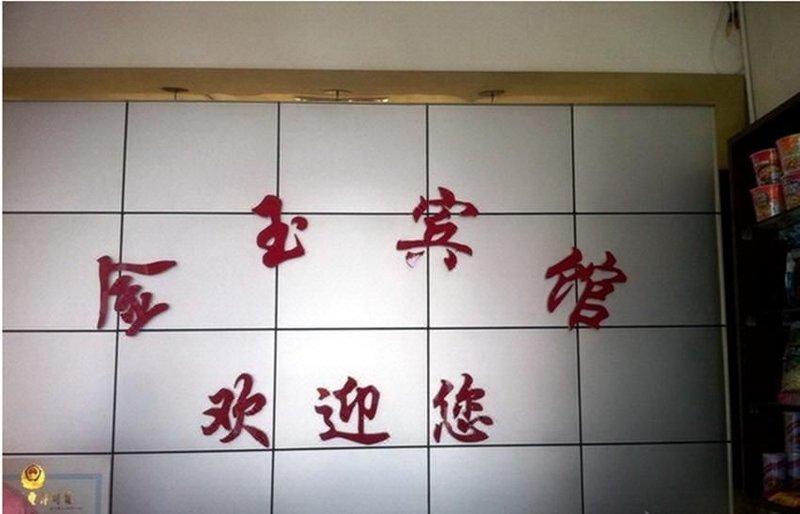 金玉宾馆
欢迎您